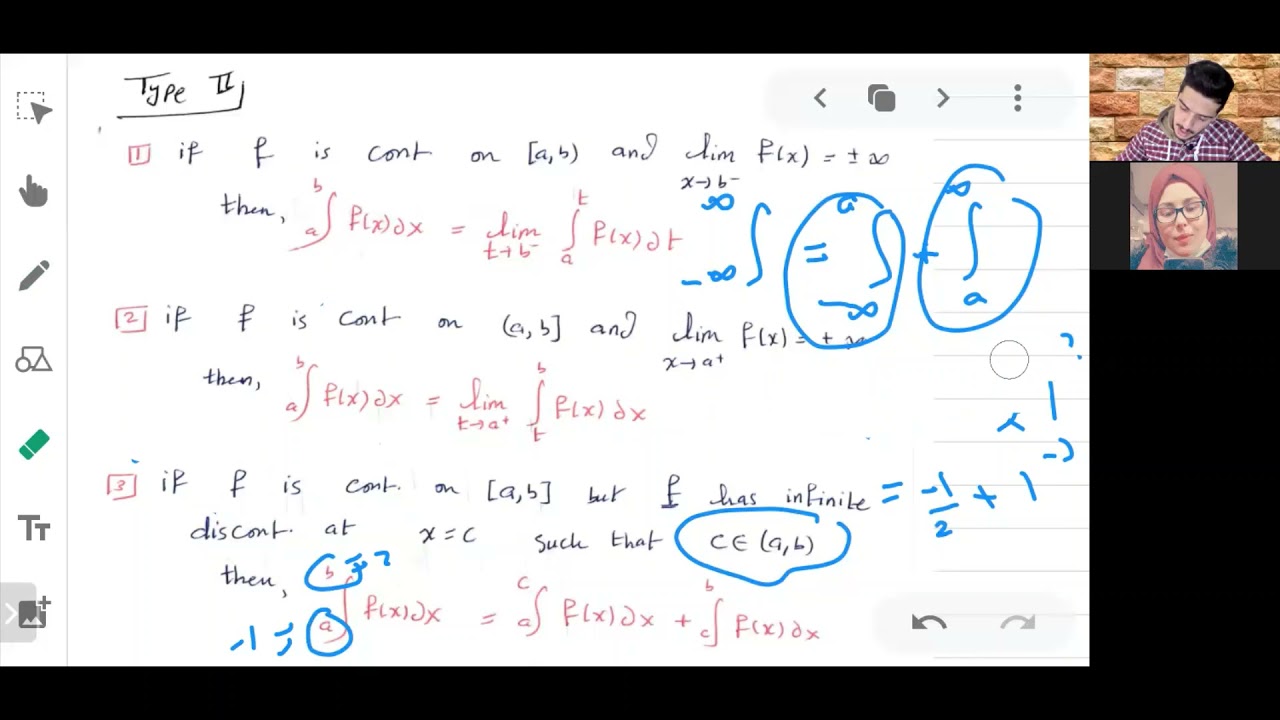 Type II
1 if f is cont. on [a,b) and lim x→b⁻ f(x) = ±∞
then, ∫_a^b f(x)∂x = lim t→b⁻ ∫_a^t f(x)∂t
∫_{-∞}^{∞} = ∫_{-∞}^{a} + ∫_a^{∞}
2 if f is cont on (a,b] and lim x→a⁺ f(x) = ± ∞
then, ∫_a^b f(x)∂x = lim t→a⁺ ∫_t^b f(x)∂x
3 if f is cont. on [a,b] but f has infinite
= -1/2 + 1
discont. at x=c such that c∈(a,b)
then, ∫_a^b f(x)∂x = ∫_a^c f(x)∂x + ∫_c^b f(x)∂x
-1
Tт